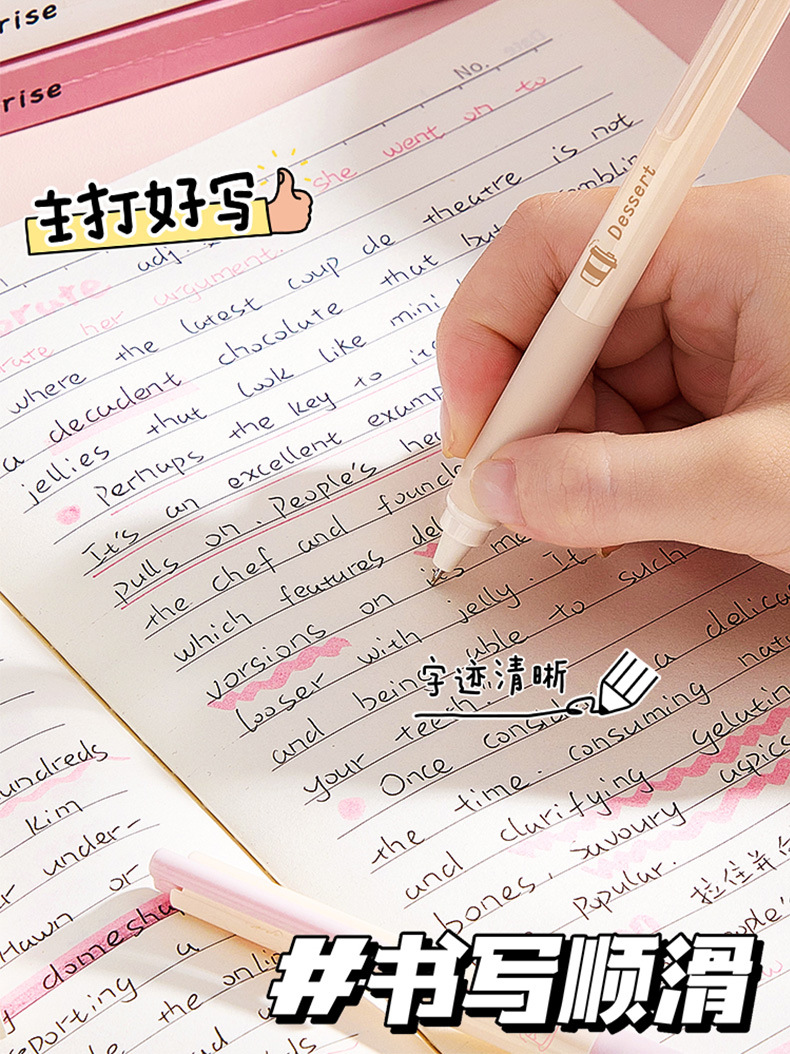 rise
rise
No.
Date
she went on to
主打好写
adj.
orate her argument.
where the latest coup de theatre is not
a decadent chocolate that but
jellies that look like mini
Perhaps the key to its
It's an excellent examp
pulls on. People's he
the chef and found
which features de
versions on its me
looser with jelly. It
and being able to such
your teeth. a delica
字迹清晰
Once consid nat
the time. consuming gelatin
and clarifying aspics
bones, savoury
Popular.
拉住并
eople's
Dessert
undreds
Kim
r under-
Hawn or
domesha
eporting a
the onlin
#书写顺滑